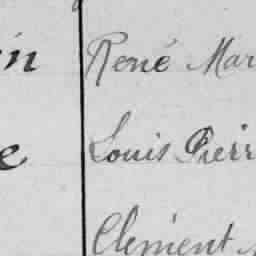 in René Mar
e Louis Pierr
Clément